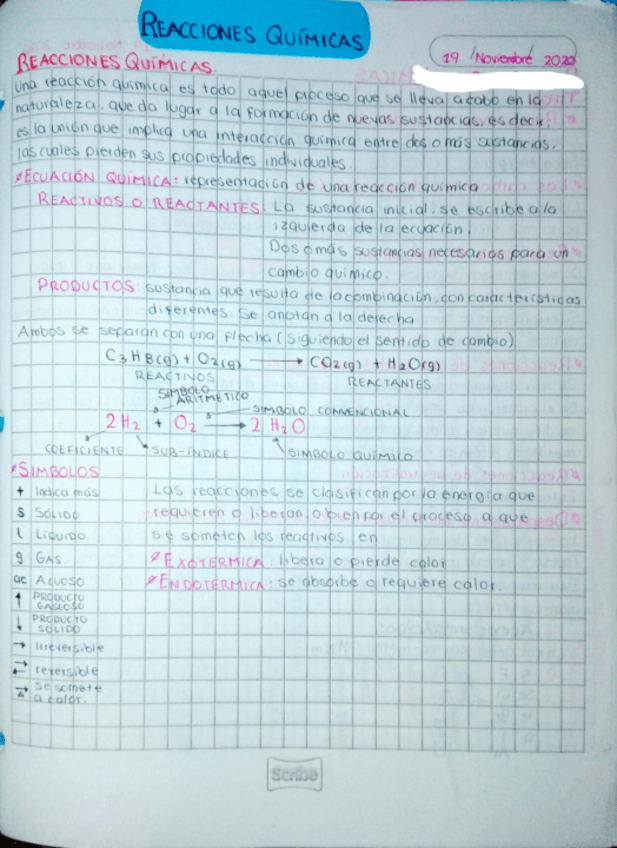 REACCIONES QUÍMICAS
19 / Noviembre 2020
REACCIONES QUÍMICAS.
Una reacción química es todo aquel proceso que se lleva a cabo en la
naturaleza. que da lugar a la formación de nuevas sustancias, es decir,
es la unión que implica una interacción química entre dos o más sustancias.
las cuales pierden sus propiedades individuales.
ECUACIÓN QUÍMICA: representación de una reacción química
REACTIVOS O REACTANTES: La sustancia inicial. se escribe a la
izquierda de la ecuación.
Dos o más sustancias necesarios para un
cambio químico.
PRODUCTOS sustancia que resulta de la combinación, con características
diferentes. Se anotan a la derecha
Ambos se separan con una flecha (siguiendo el sentido de cambio).
C3H8(g) + O2(g) → CO2(g) + H2O(g)
REACTIVOS REACTANTES
SIMBOLO
ARITMÉTICO
SIMBOLO CONVENCIONAL
2H2 + O2 → 2 H2O
COEFICIENTE SUB-ÍNDICE SIMBOLO QUÍMICO
SIMBOLOS
+ Indica más
S SÓLIDO
l LÍQUIDO
g GAS
ac ACUOSO
↑ PRODUCTO
GASEOSO
↓ PRODUCTO
SÓLIDO
→ Irreversible
⇄ reversible
se somete
a calor.
Las reacciones se clasifican por la energía que
requieren o liberan, o bien por el proceso a que
se someten los reactivos en
EXOTÉRMICA: libera o pierde calor
ENDOTÉRMICA: se absorbe o requiere calor.
Scribe